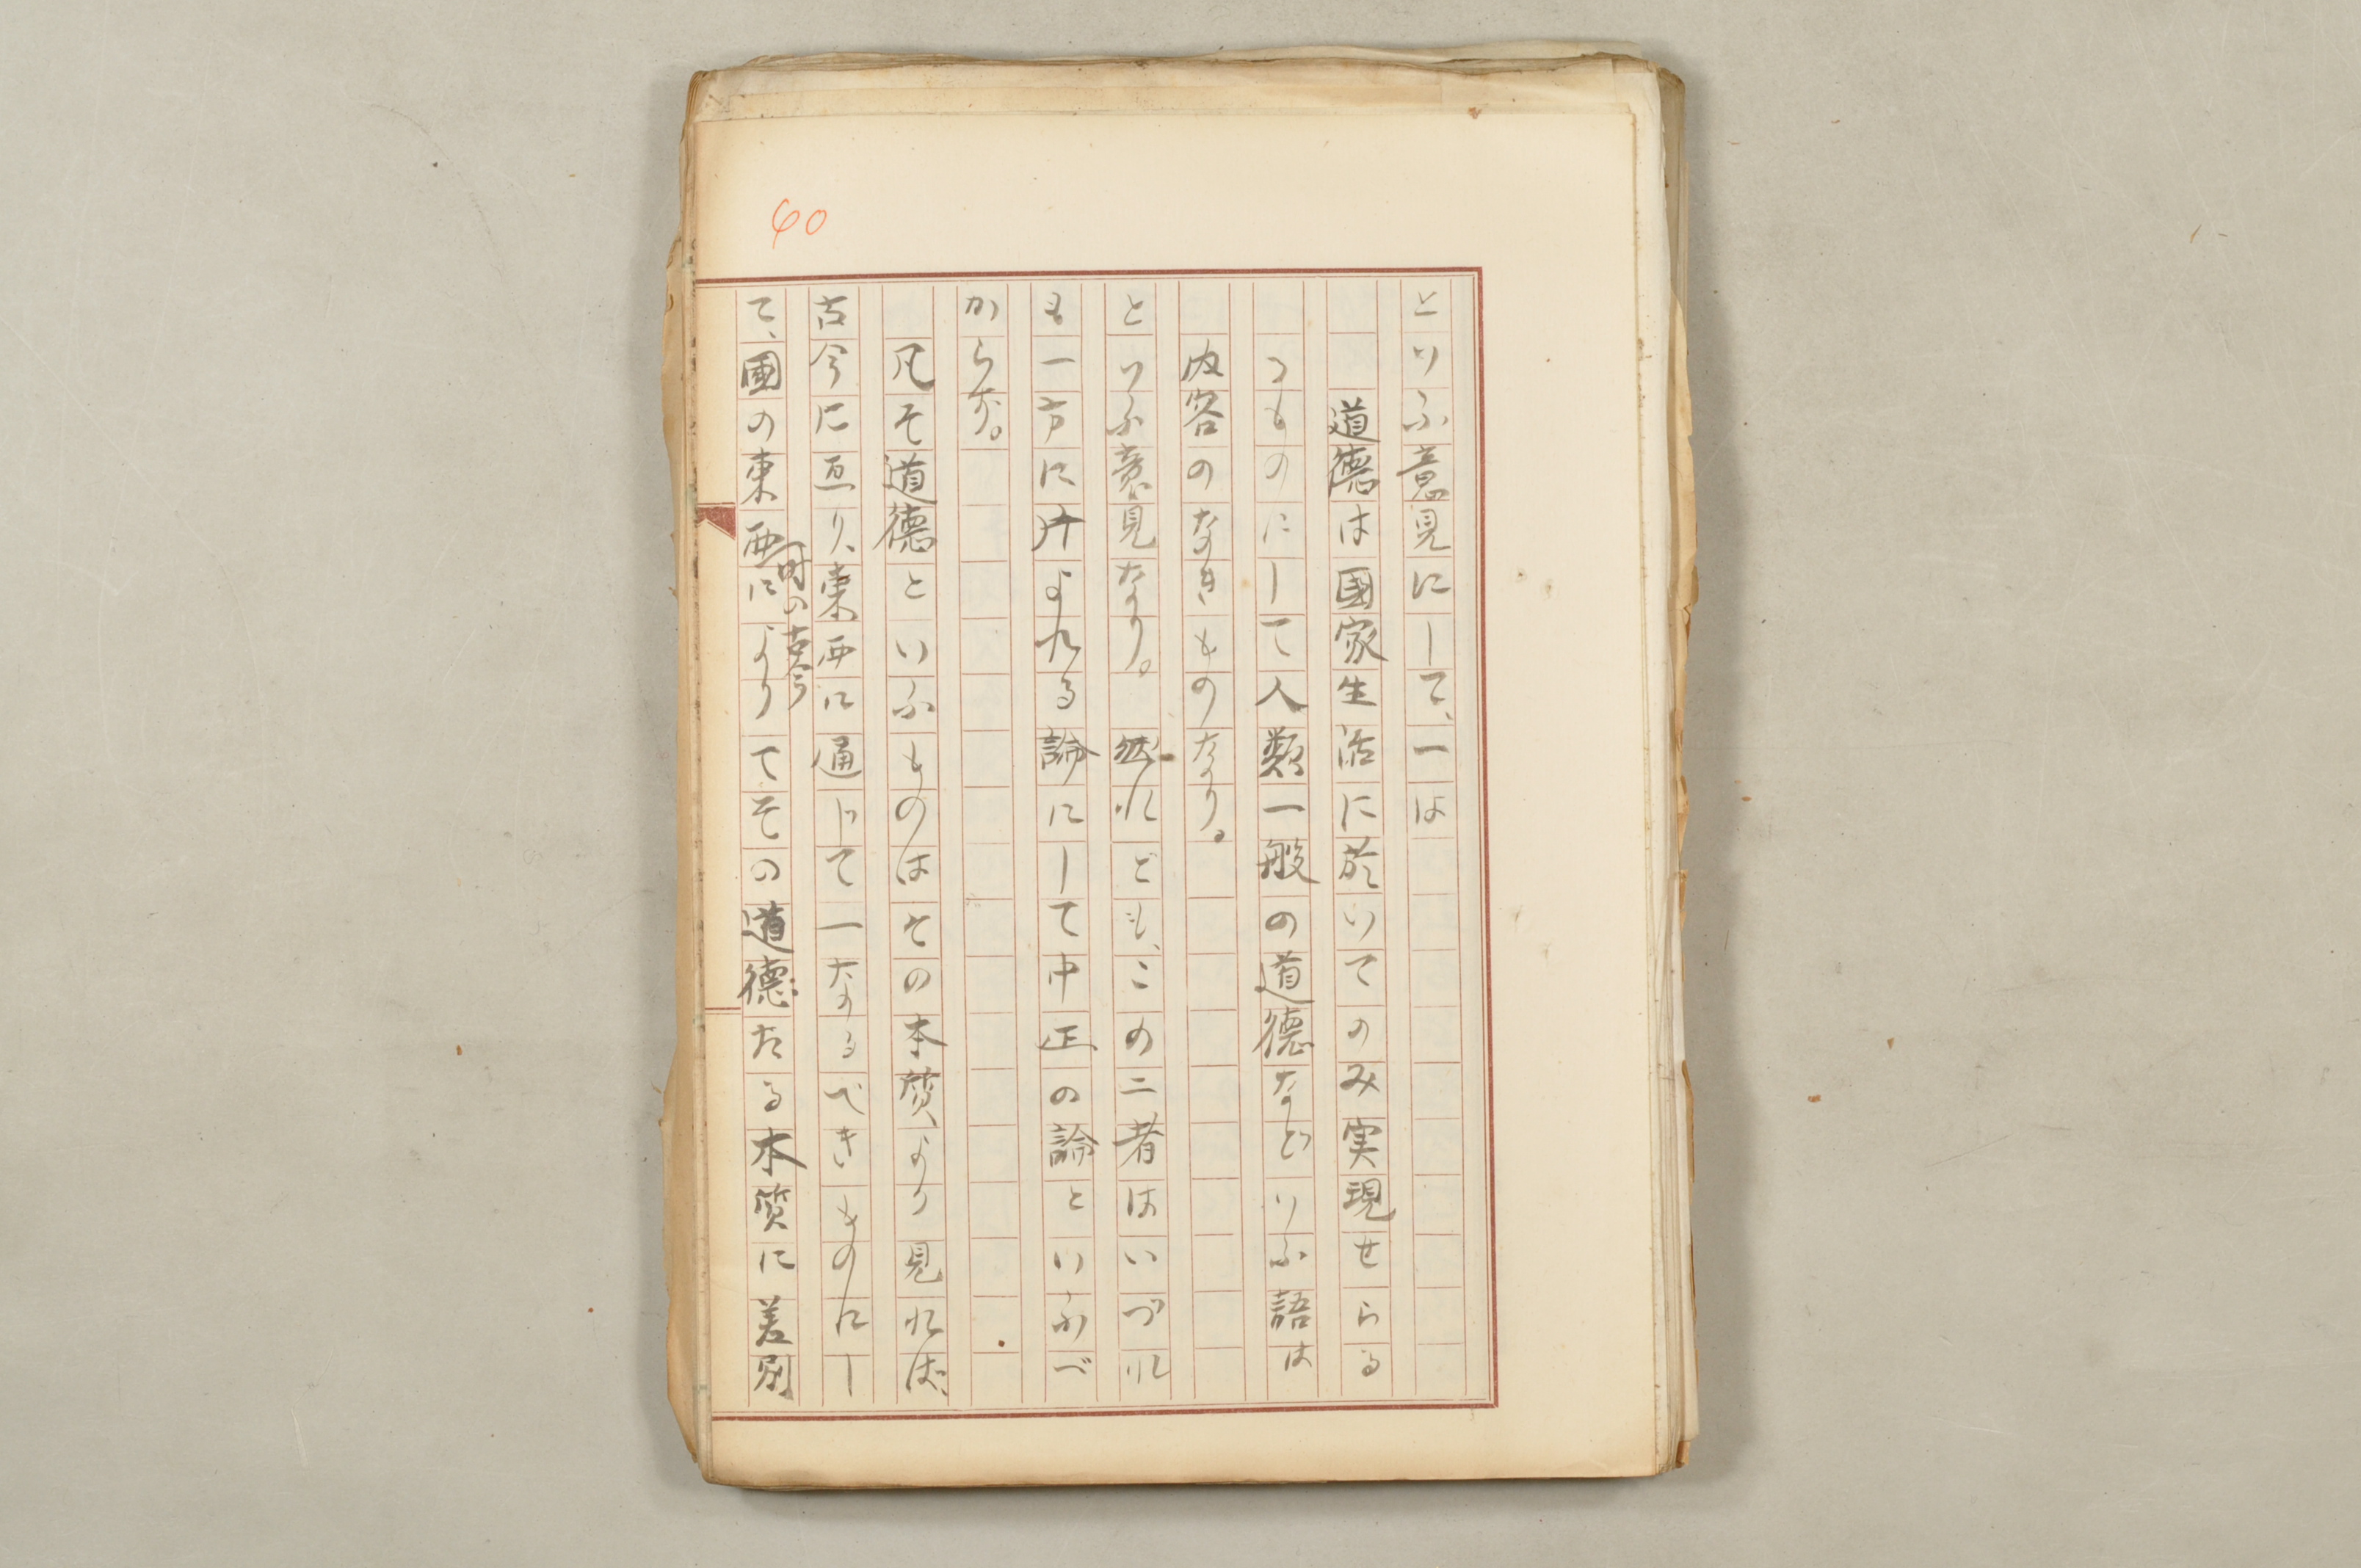 40
といふ意見にして、一は
道徳は國家生活に於いてのみ実現せらる
ゝものにして人類一般の道徳などいふ語は
内容のなきものなり。
といふ意見なり。然れども、この二者はいづれ
も一方に片よれる論にして中正の論といふべ
からず。
凡そ道徳といふものはその本質より見れば、
古今に亙り、東西に通じて一なるべきものにし
時の古今
て、國の東西によりてその道徳たる本質に差別